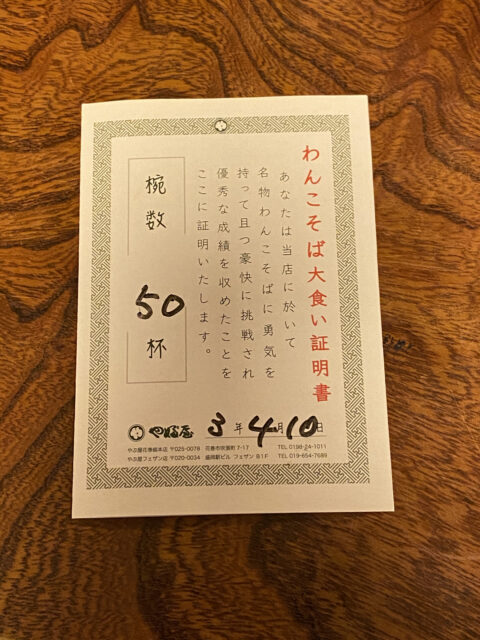 わんこそば大食い証明書
あなたは当店に於いて
名物わんこそばに勇気を
持って且つ豪快に挑戦され
優秀な成績を収めたことを
ここに証明いたします。
椀数 50 杯
3年4月10日
やぶ屋
やぶ屋花巻総本店 〒025-0078 花巻市吹張町 7-17 TEL 0198-24-1011
やぶ屋フェザン店 〒020-0034 盛岡駅ビル フェザン B1F TEL 019-654-7689